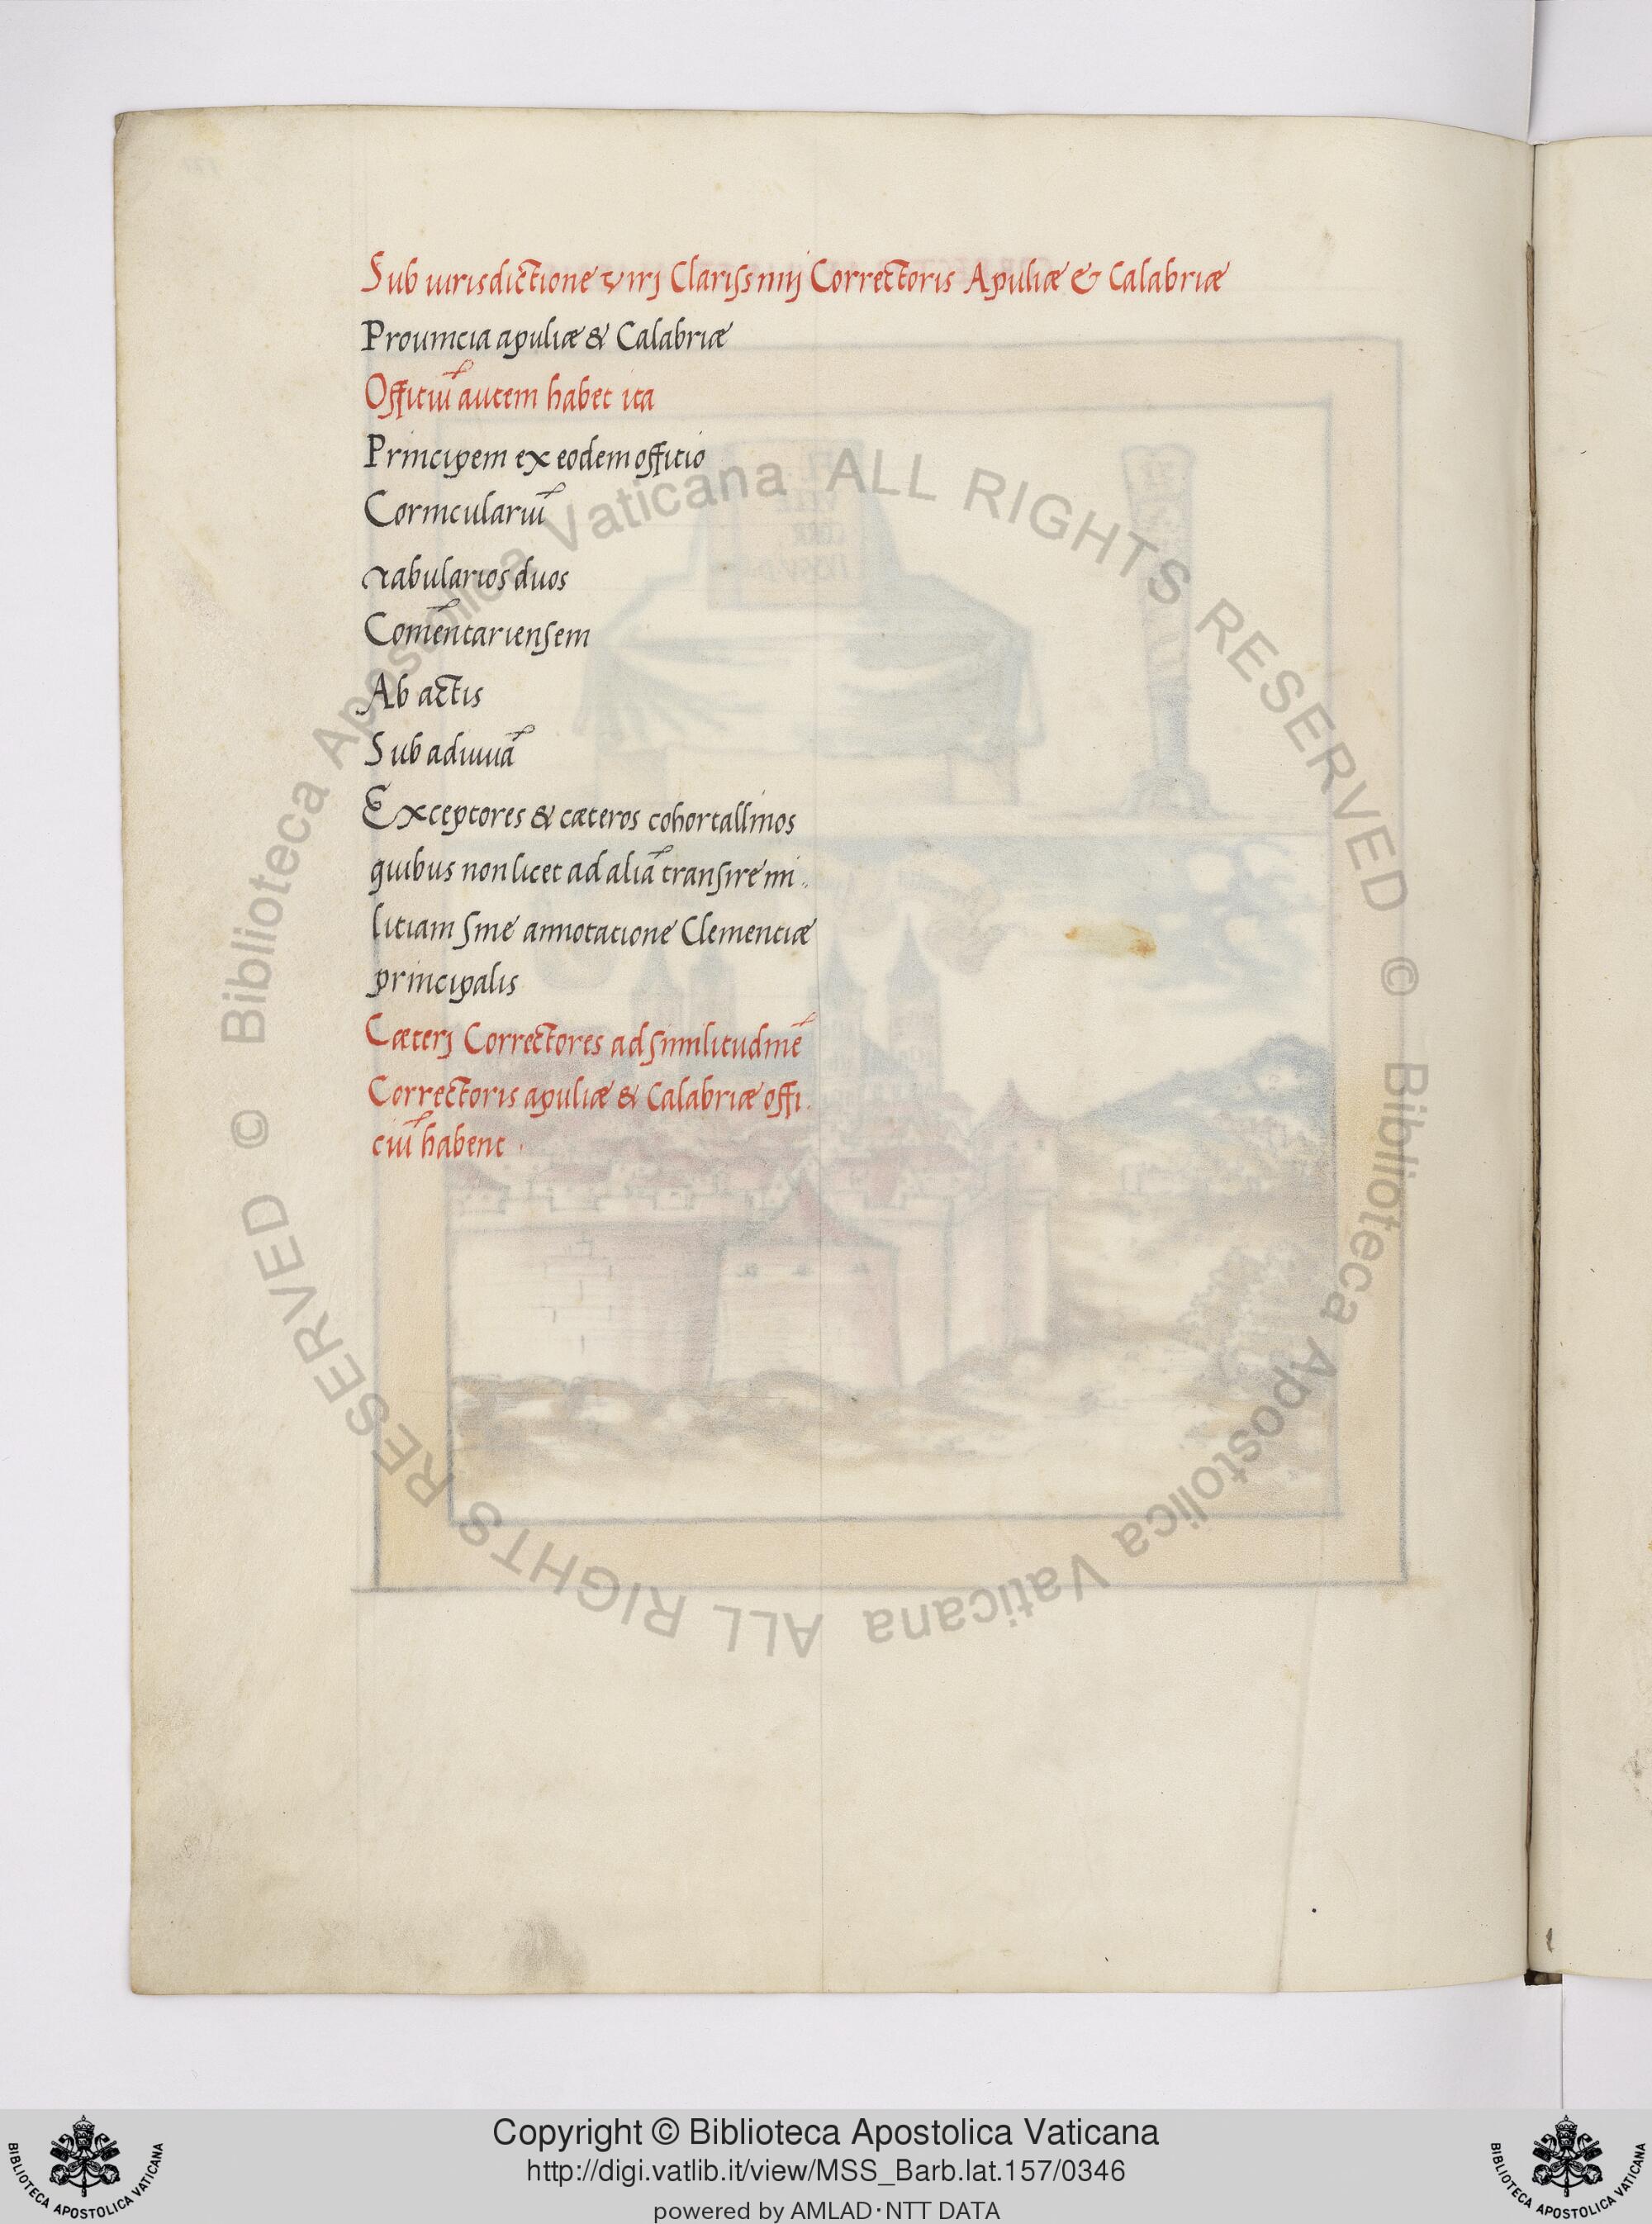 Sub iurisdictione virj Clarissimij Correctoris Apuliæ & Calabriæ
Prouincia apuliæ & Calabriæ
Officiū autem habet ita
Principem ex eodem officio
Corniculariū
Tabularios duos
Comēntariensem
Ab actis
Sub adiuuā
Exceptores & cæteros cohortallinos
quibus non licet ad aliā transire mi..
litiam sine annotatione Clementiæ
principalis
Cæterj Correctores ad similitudinē
Correctoris apuliæ & Calabriæ offi.
ciū habent .
© Biblioteca Apostolica Vaticana ALL RIGHTS RESERVED
© Biblioteca Apostolica Vaticana ALL RIGHTS RESERVED
Copyright © Biblioteca Apostolica Vaticana
http://digi.vatlib.it/view/MSS_Barb.lat.157/0346
powered by AMLAD·NTT DATA
BIBLIOTECA APOSTOLICA VATICANA
BIBLIOTECA APOSTOLICA VATICANA